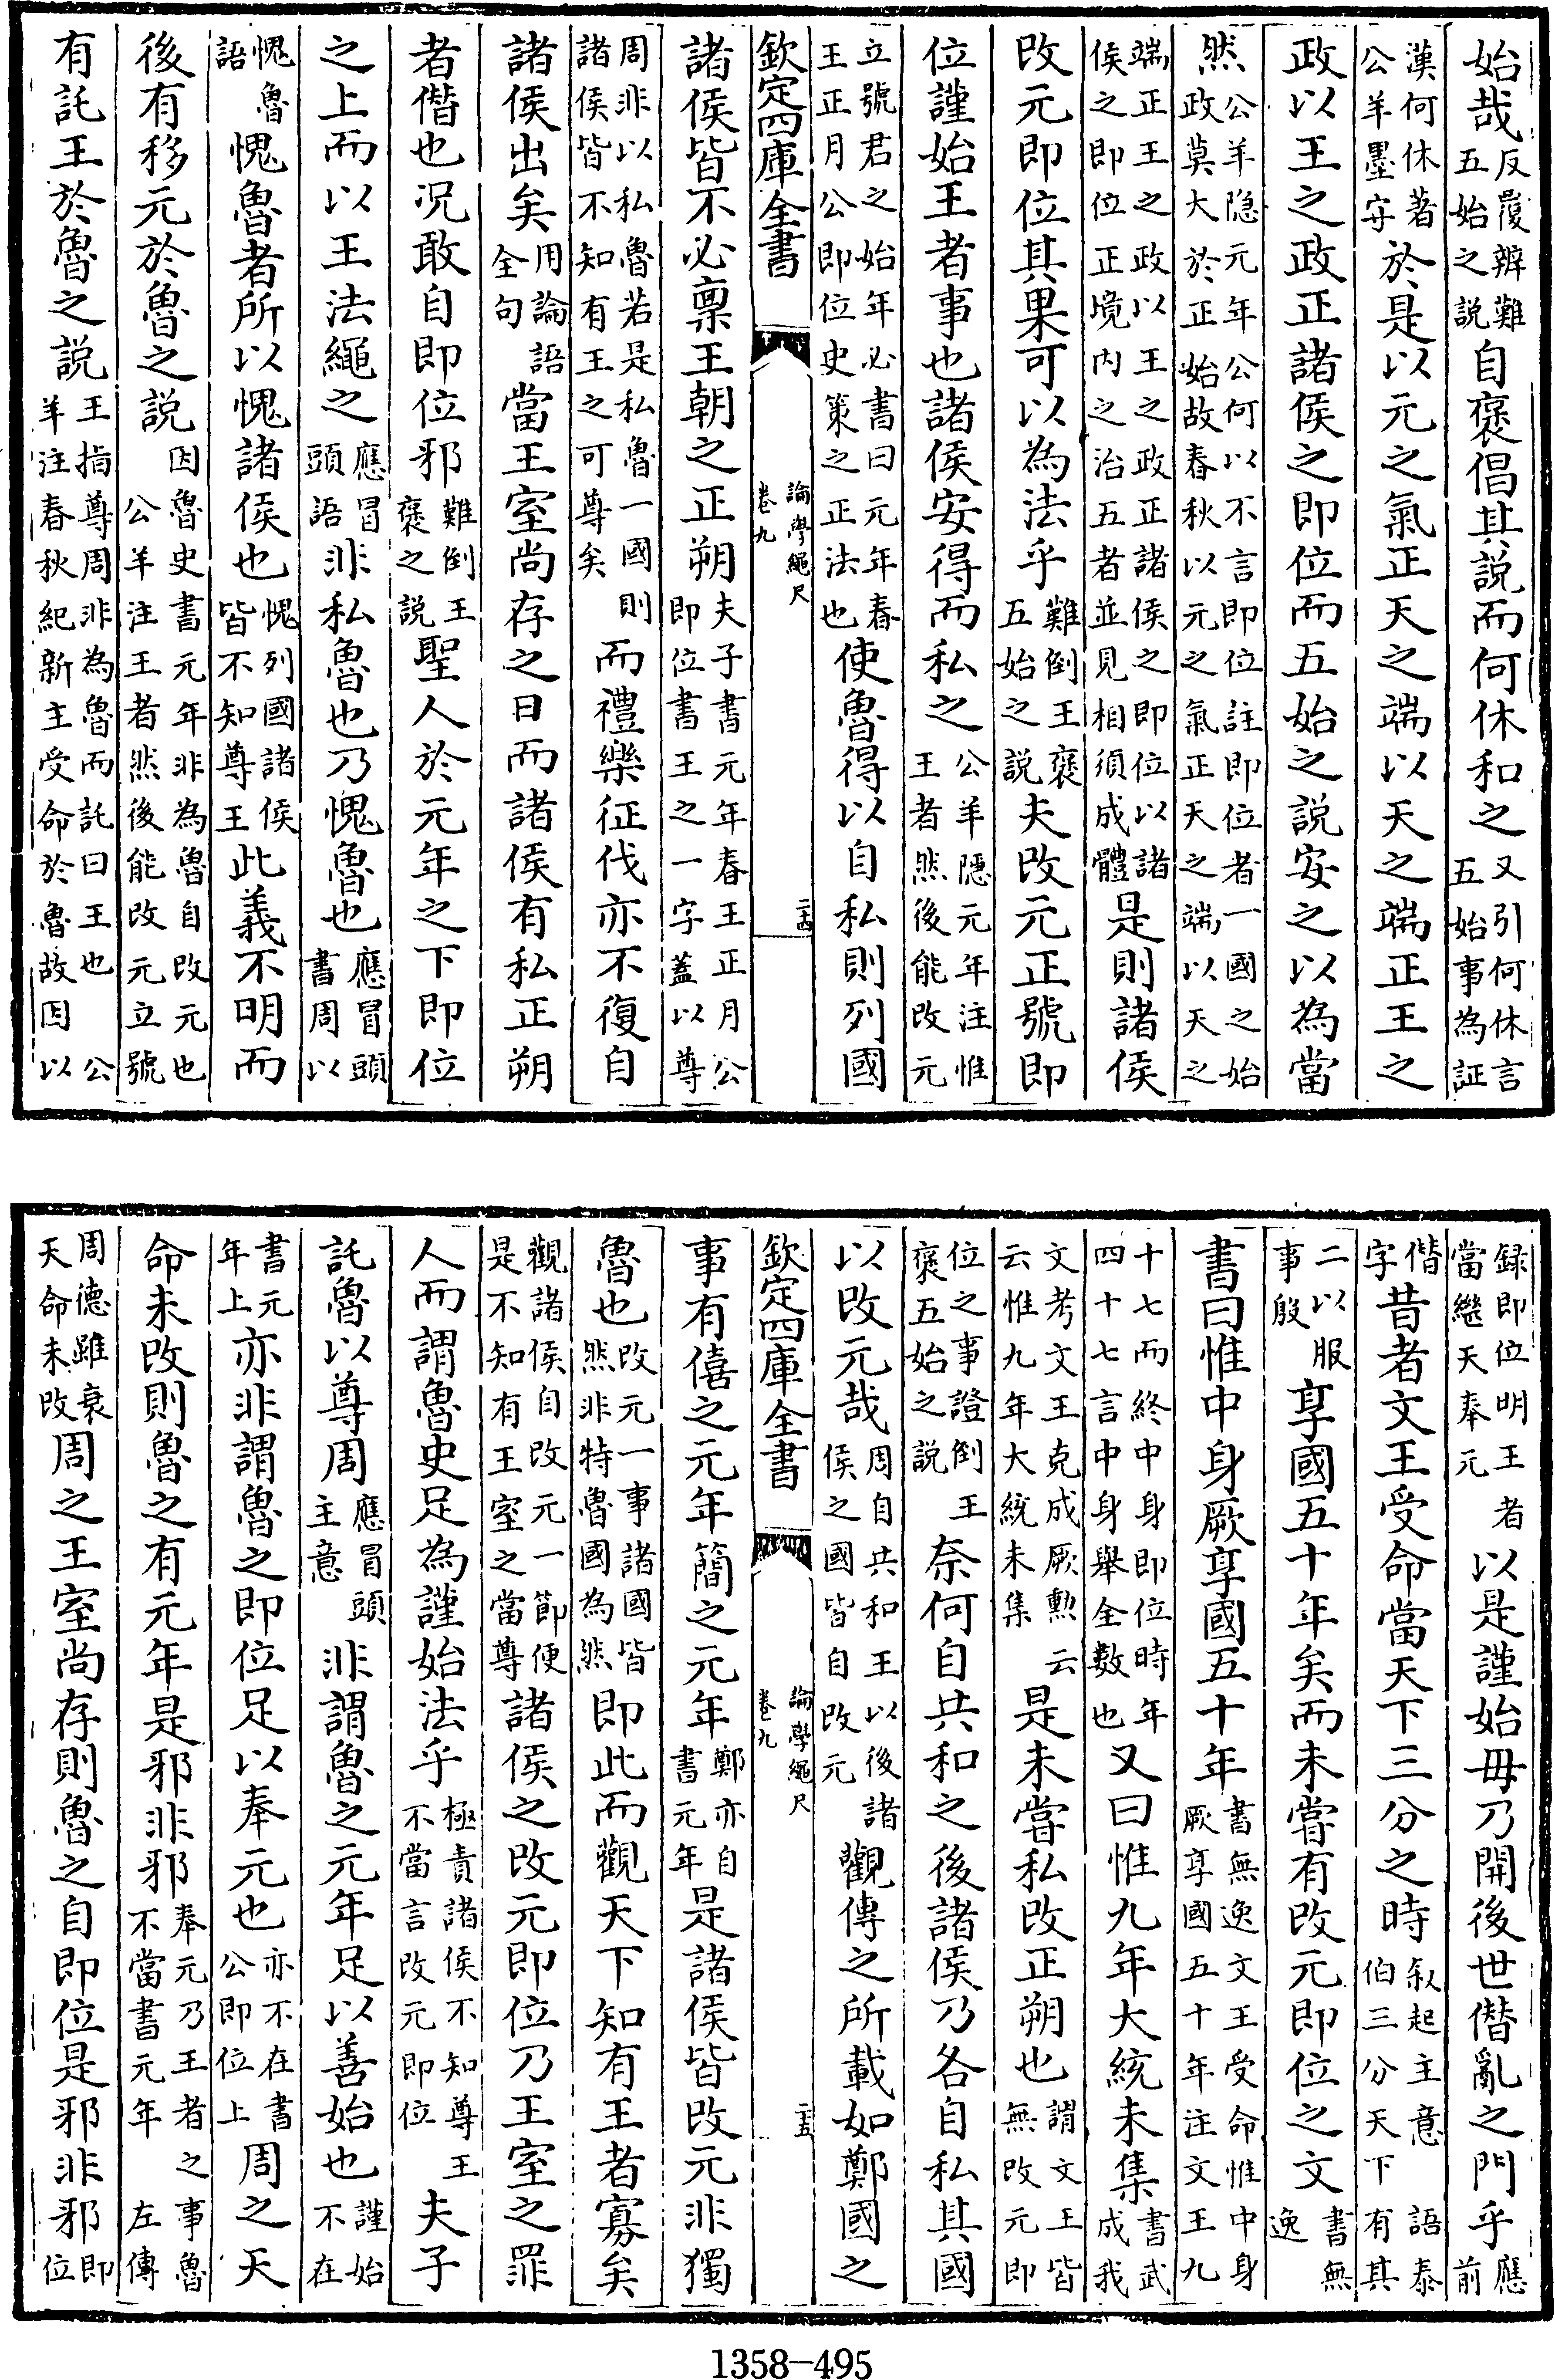 始哉反覆辨難五始之説自褒倡其説而何休和之又引何休言五始事為証
漢何休著公羊墨守於是以元之氣正天之端以天之端正王之
政以王之政正諸侯之即位而五始之説安之以為當
然公羊隐元年公何以不言即位註即位者一國之始政莫大於正始故春秋以元之氣正天之端以天之
端正王之政以王之政正諸侯之即位以諸侯之即位正境内之治五者並見相須成體是則諸侯
改元即位其果可以為法乎難倒王褒五始之説夫改元正號即
位謹始王者事也諸侯安得而私之公羊隱元年注惟王者然後能改元
立號君之始年必書曰元年春王正月公即位史策之正法也使魯得以自私則列國
欽定四庫全書 論學繩尺 卷九 二十四
諸侯皆不必禀王朝之正朔夫子書元年春王正月公即位書王之一字蓋以尊
周非以私魯若是私魯一國則諸侯皆不知有王之可尊矣而禮樂征伐亦不復自
諸侯出矣用論語全句當王室尚存之日而諸侯有私正朔
者僭也况敢自即位邪難倒王褒之説聖人於元年之下即位
之上而以王法繩之應冒頭語非私魯也乃愧魯也應冒頭書周以
愧魯語愧魯者所以愧諸侯也愧列國諸侯皆不知尊王此義不明而
後有移元於魯之説因魯史書元年非為魯自改元也公羊注王者然後能改元立號
有託王於魯之説王指尊周非為魯而託曰王也公羊注春秋紀新主受命於魯故因以
録即位明王者當繼天奉元以是謹始毋乃開後世僭亂之門乎應前
僭字昔者文王受命當天下三分之時叙起主意語泰伯三分天下有其
二以服事殷享國五十年矣而未嘗有改元即位之文書無逸
書曰惟中身厥享國五十年書無逸文王受命惟中身厥享國五十年注文王九
十七而終中身即位時年四十七言中身舉全數也又曰惟九年大統未集書武成我
文考文王克成厥勲云云惟九年大統未集是未嘗私改正朔也謂文王皆無改元即
位之事證倒王褒五始之説奈何自共和之後諸侯乃各自私其國
以改元哉周自共和王以後諸侯之國皆自改元觀傳之所載如鄭國之
欽定四庫全書 論學繩尺 卷九 二十五
事有僖之元年簡之元年鄭亦自書元年是諸侯皆改元非獨
魯也改元一事諸國皆然非特魯國為然即此而觀天下知有王者寡矣
觀諸侯自改元一節便是不知有王室之當尊諸侯之改元即位乃王室之罪
人而謂魯史足為謹始法乎極責諸侯不知尊王不當言改元即位夫子
託魯以尊周應冒頭主意非謂魯之元年足以善始也謹始不在
書元年上亦非謂魯之即位足以奉元也亦不在書公即位上周之天
命未改則魯之有元年是邪非邪奉元乃王者之事魯不當書元年左傳
周德雖衰天命未改周之王室尚存則魯之自即位是邪非邪即位
1358-495